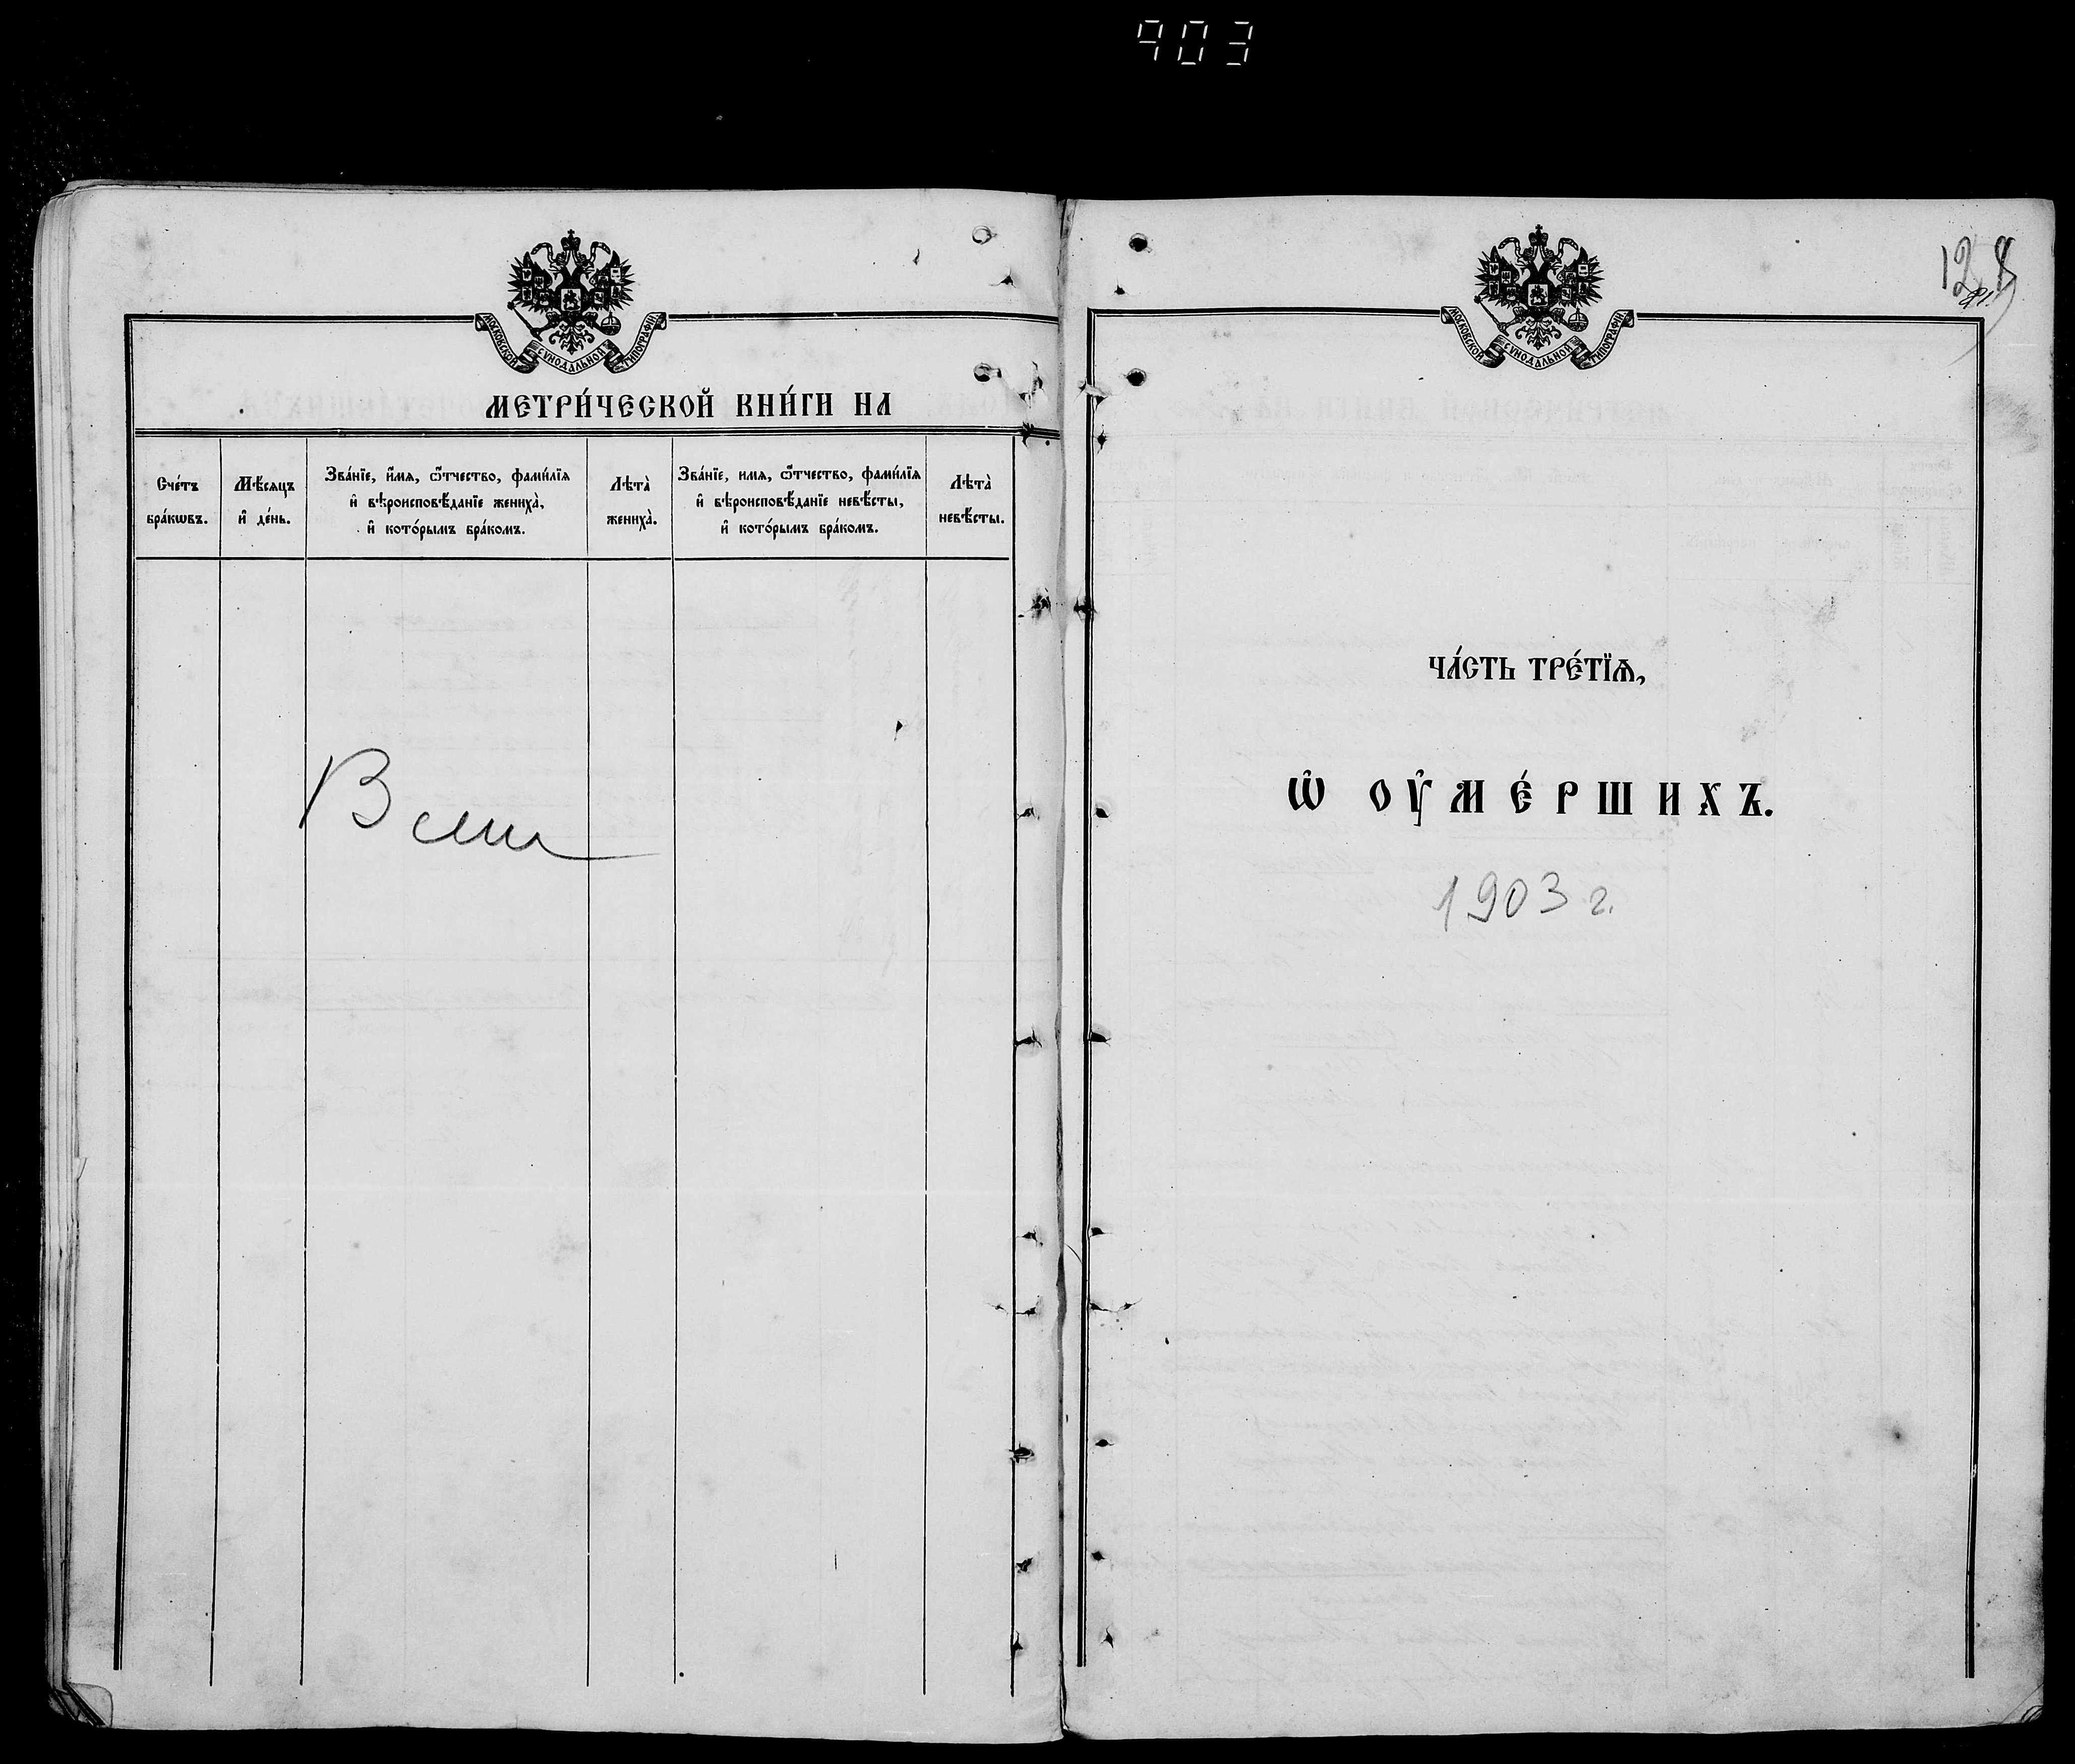 903
МОСКОВСКОЙ СѴНОДАЛЬНОЙ ТИПОГРАФІИ
МЕТРИ́ЧЕСКОЙ КНИ́ГИ НА
Сче́тъ
бра́кѡвъ.
Мѣ́сяцъ
и҆ де́нь.
Зва́нїе, и҆́мя, ѻ҆́тчество, фами́лїя
и҆ вѣроисповѣ́данїе жениха̀,
и҆ кото́рымъ бра́комъ.
Лѣта̀
жениха̀.
Зва́нїе, имя, ѻ҆́тчество, фами́лїя
и҆ вѣроисповѣ́данїе невѣ́сты,
и҆ кото́рымъ бра́комъ.
Лѣта̀
невѣ́сты.
МОСКОВСКОЙ СѴНОДАЛЬНОЙ ТИПОГРАФІИ
ЧА́СТЬ ТРЕ́ТЇѦ,
Ѡ҆ ОУ҆МЕ́РШИХЪ.
1903 г.